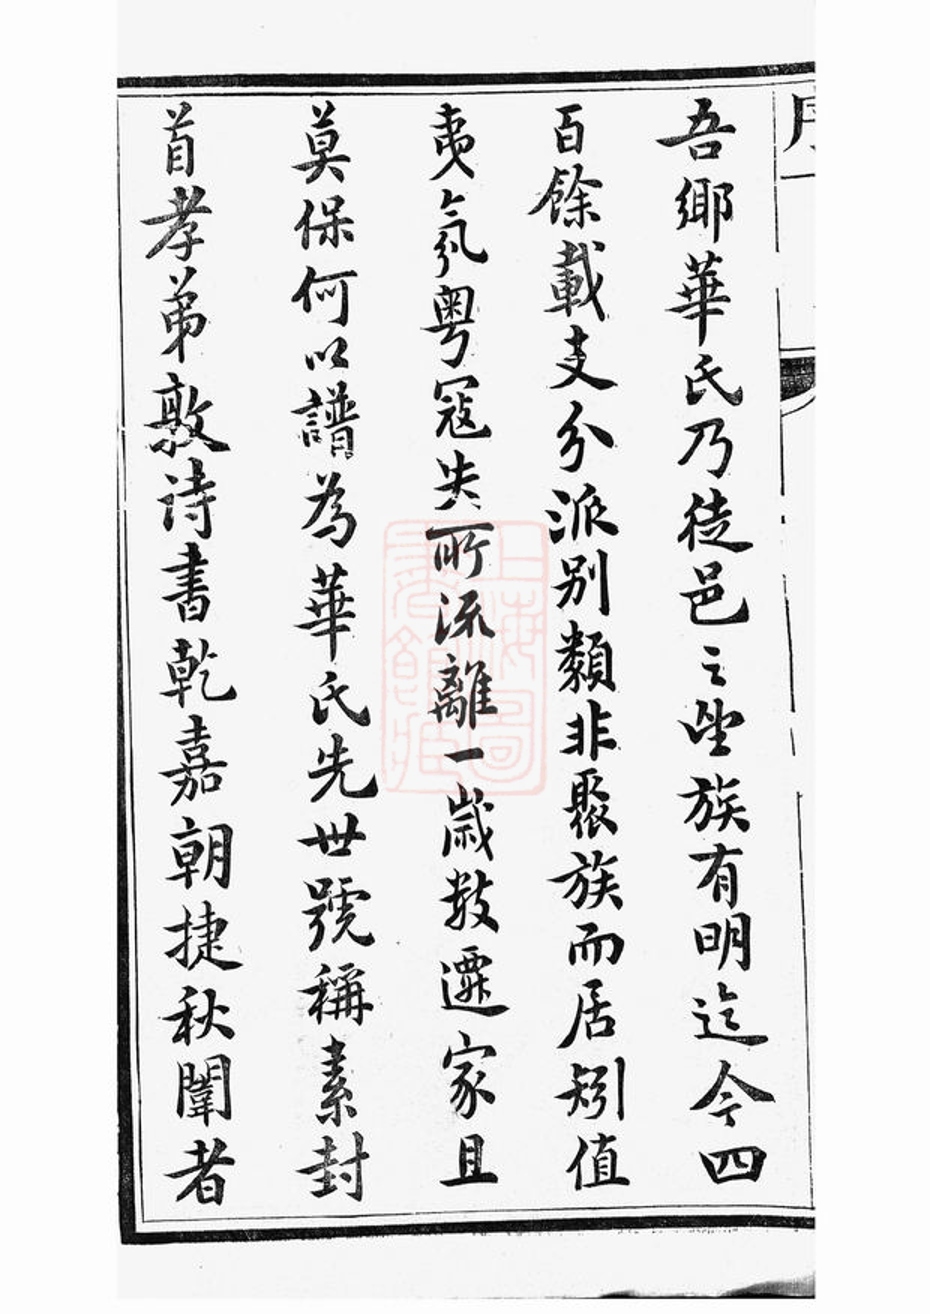 吾鄉華氏乃徙邑之望族有明迄今四
百餘載支分派別類非聚族而居矧值
夷氛粵寇失所流離一歲數遷家且
莫保何以譜為華氏先世號稱素封
首孝弟敦诗書乾嘉朝捷秋闈者
上海圖書館藏